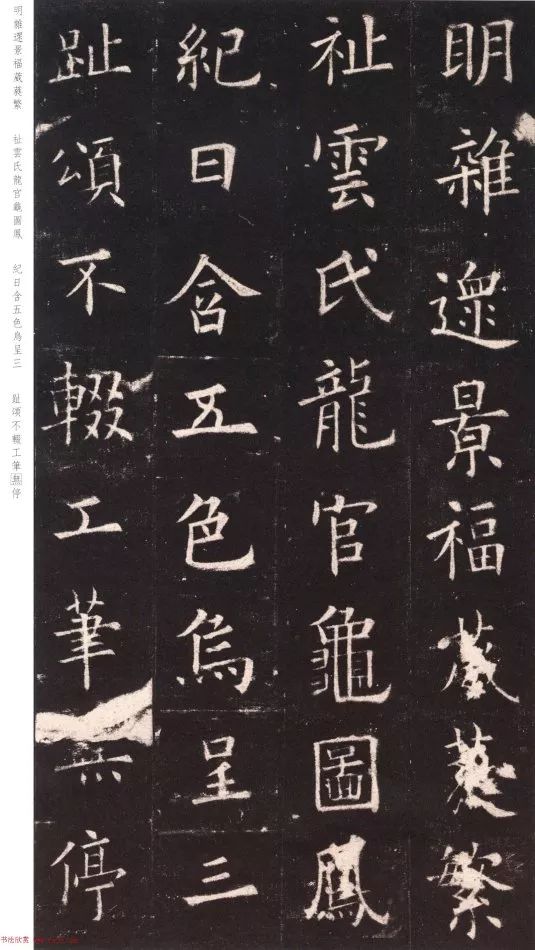 明雜遝景福葳蕤繁
祉雲氏龍官龜圖鳳
紀日含五色烏呈三
趾頌不輟工筆無停
明雜遝景福葳蕤繁 祉雲氏龍官龜圖鳳 紀日含五色烏呈三 趾頌不輟工筆無停
书法欣赏